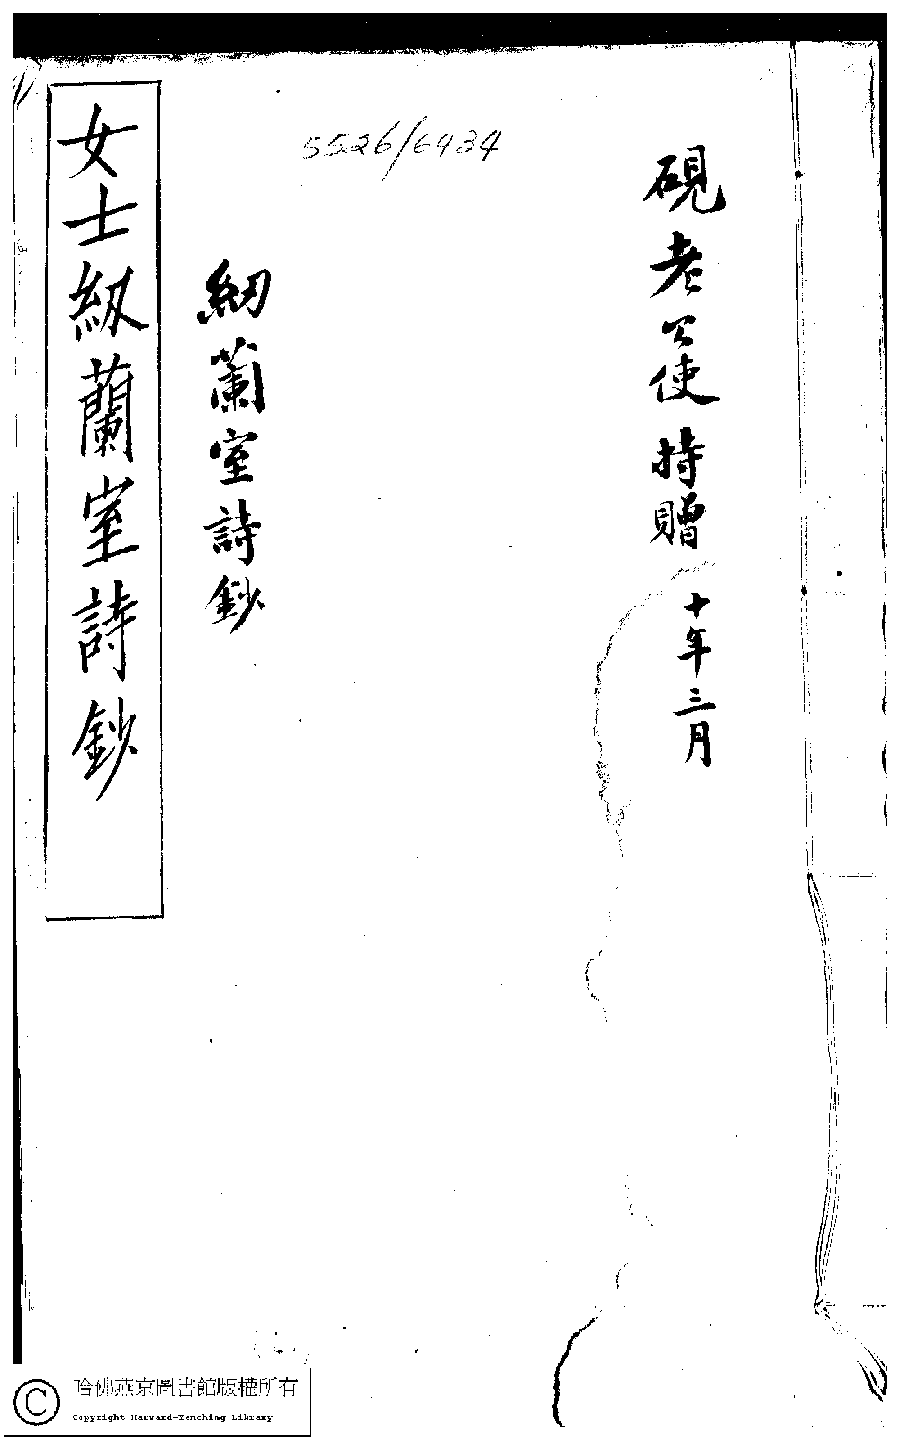 5526/6434
硯老公使持贈 十年三月
紉蘭室詩鈔
女士紉蘭室詩鈔
哈佛燕京圖書館版權所有
Copyright Harvard-Yenching Library